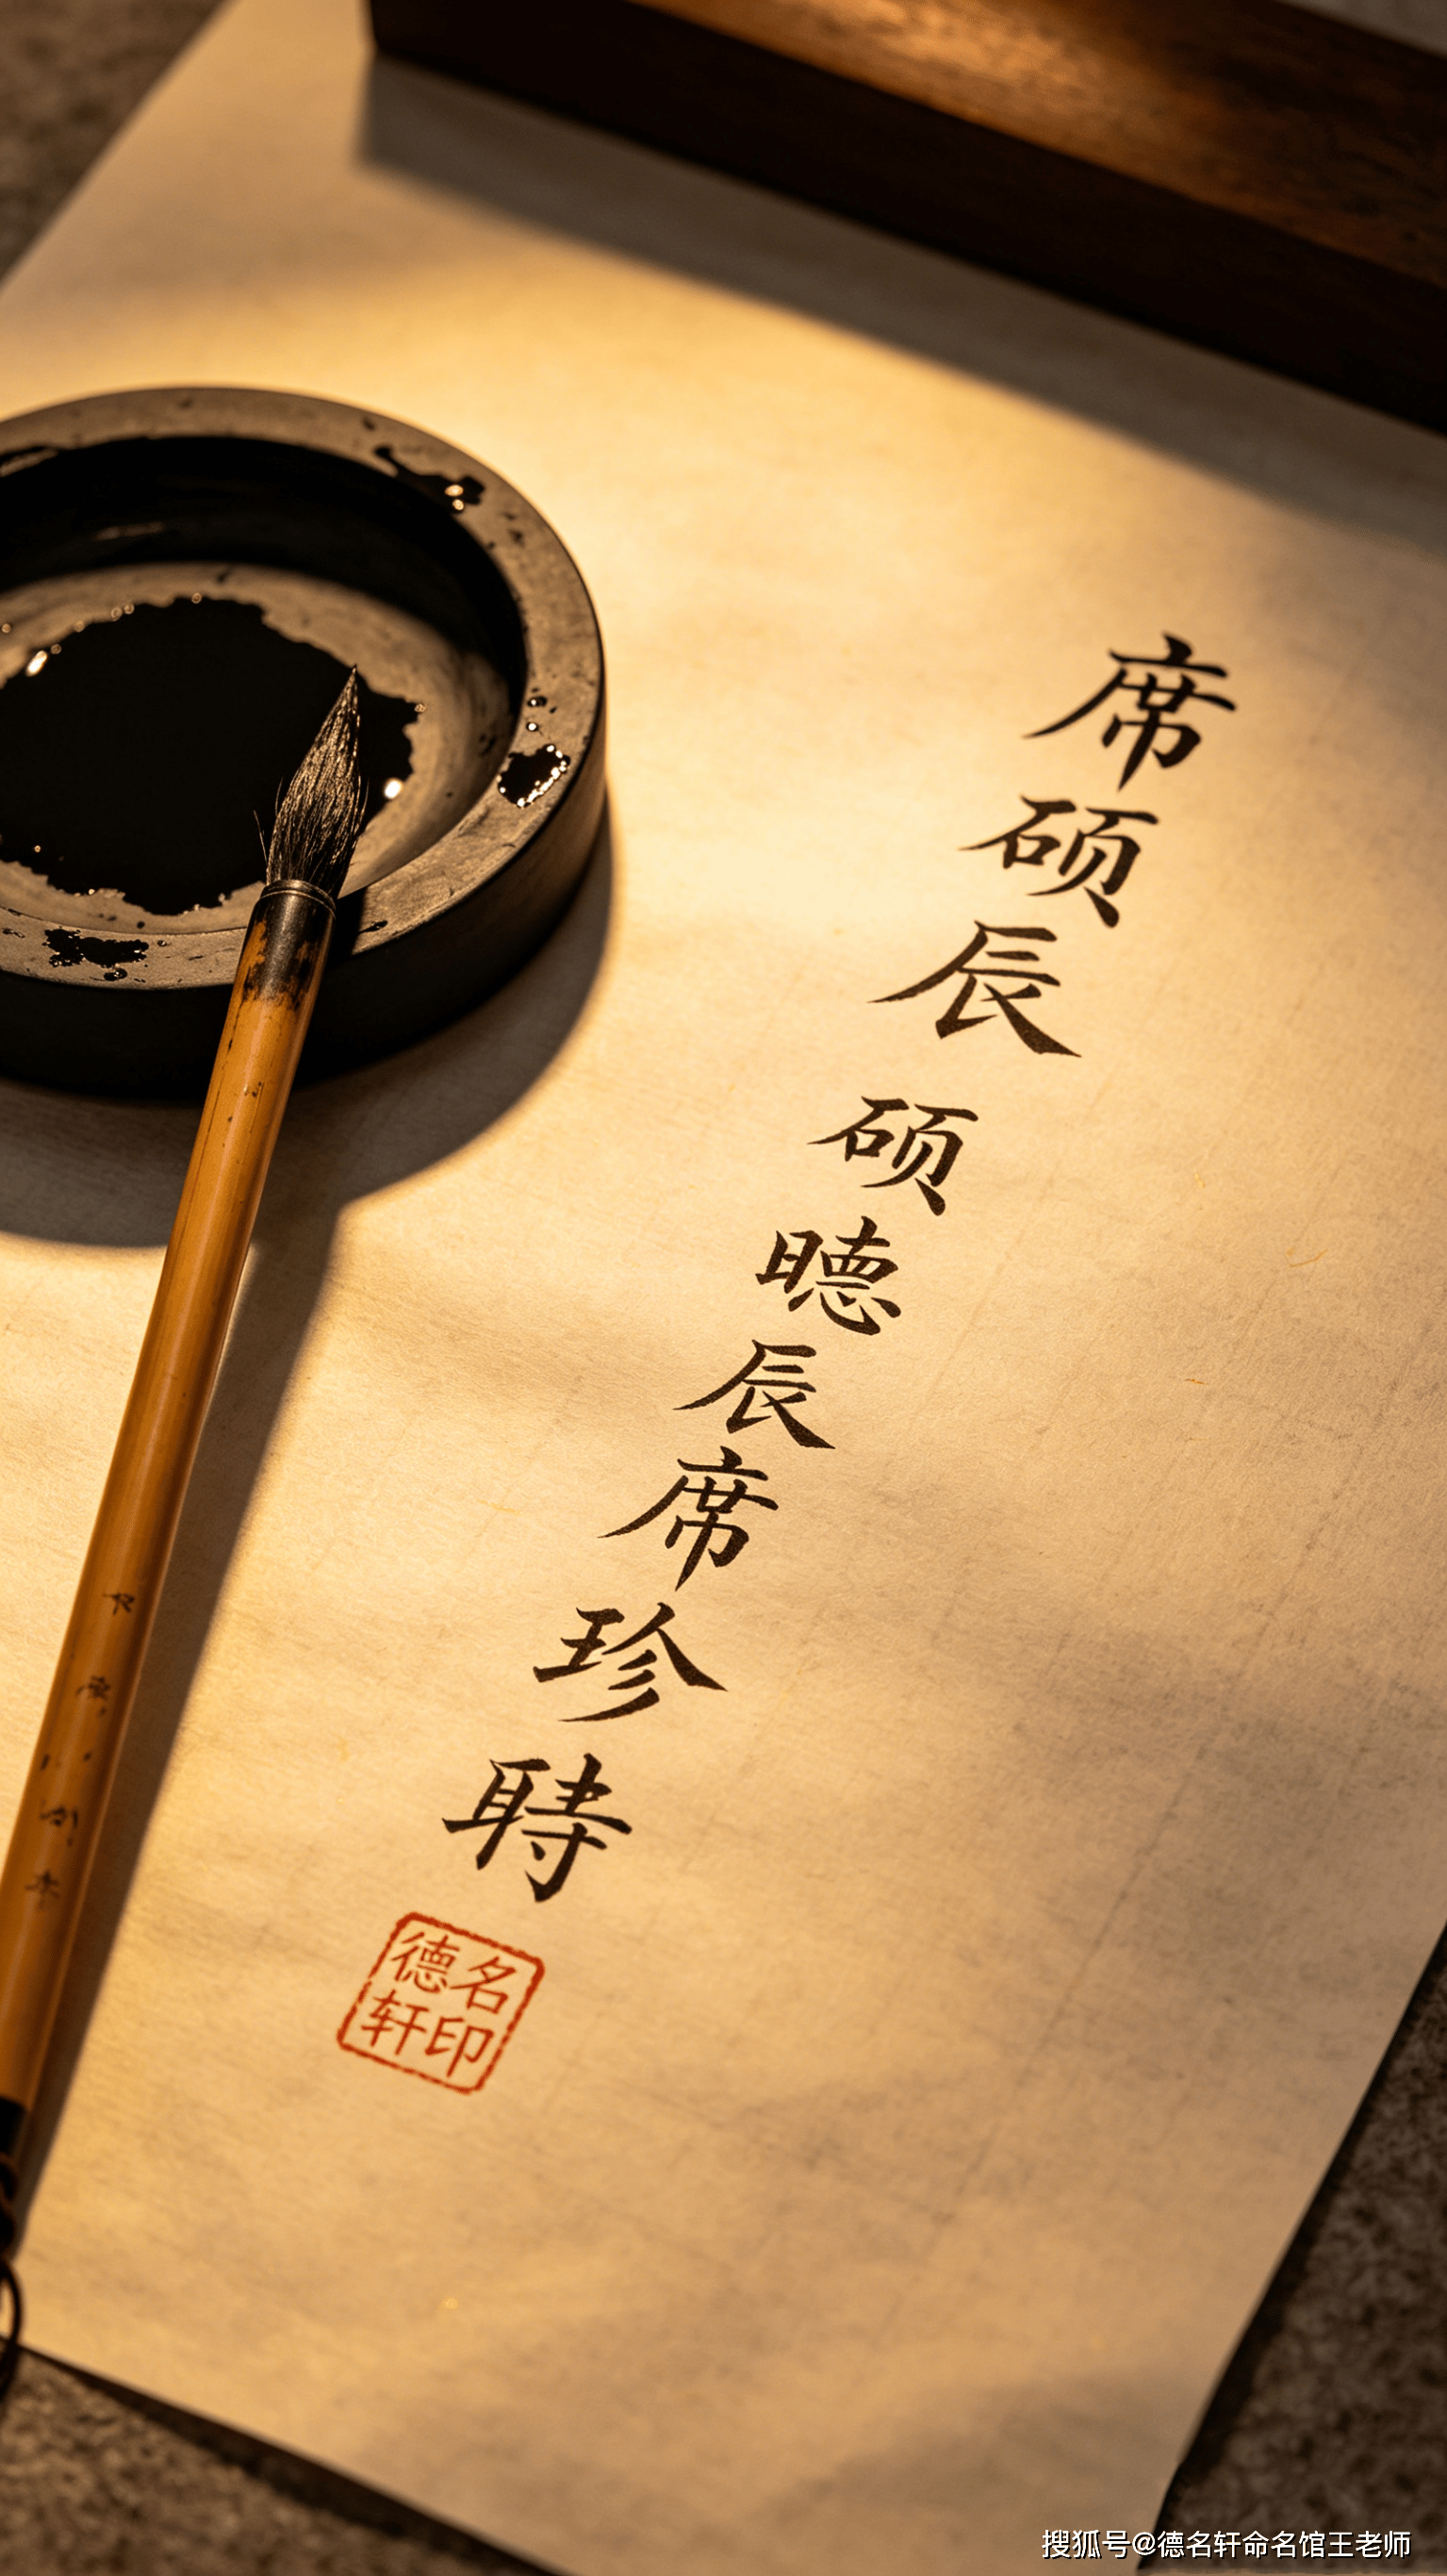 席硕辰 硕辰席珍
德名
轩印
搜狐号@德名轩命名馆王老师